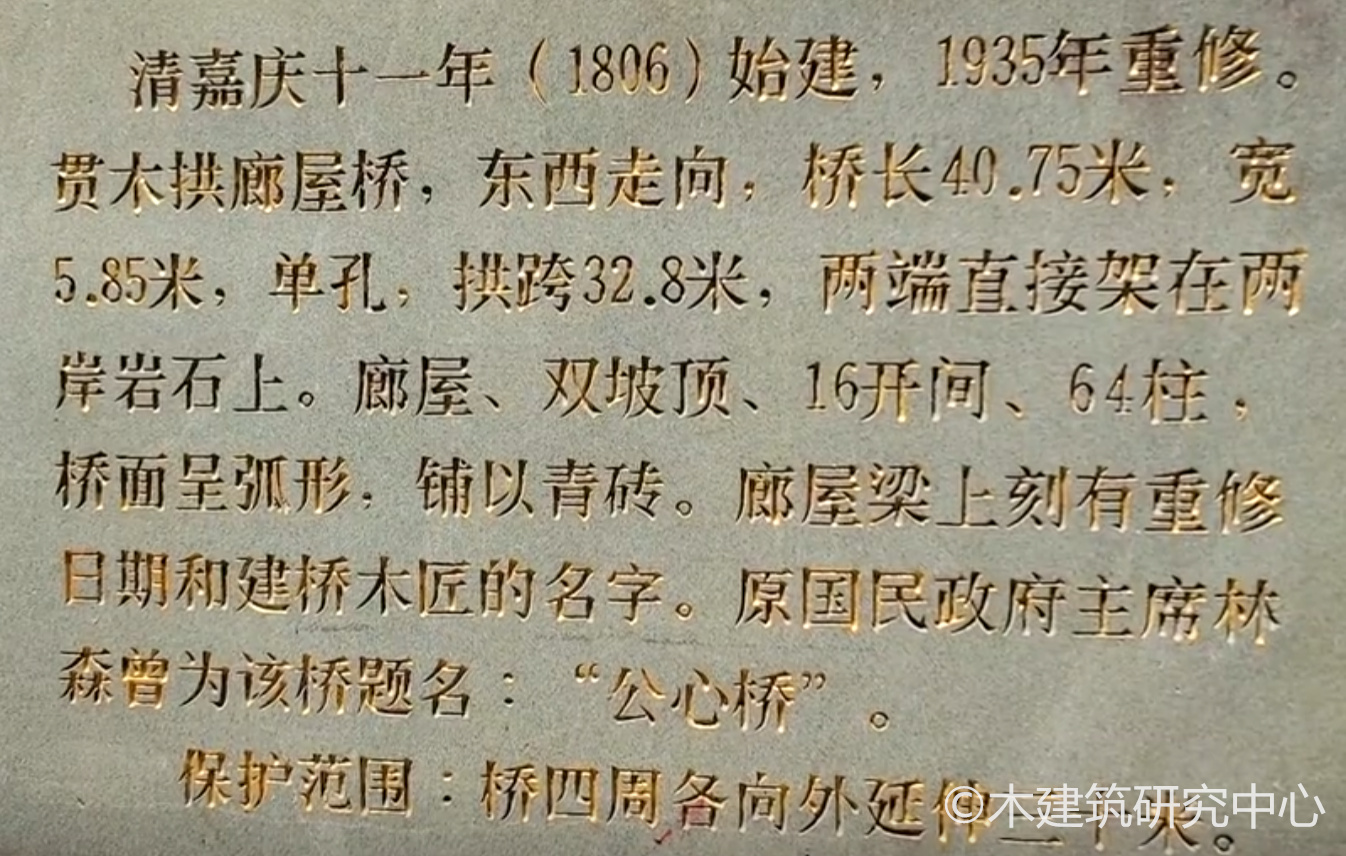 清嘉庆十一年（1806）始建，1935年重修。
贯木拱廊屋桥，东西走向，桥长40.75米，宽
5.85米，单孔，拱跨32.8米，两端直接架在两
岸岩石上。廊屋、双坡顶、16开间、64柱，
桥面呈弧形，铺以青砖。廊屋梁上刻有重修
日期和建桥木匠的名字。原国民政府主席林
森曾为该桥题名：“公心桥”。
保护范围：桥四周各向外延伸三十米。
©木建筑研究中心